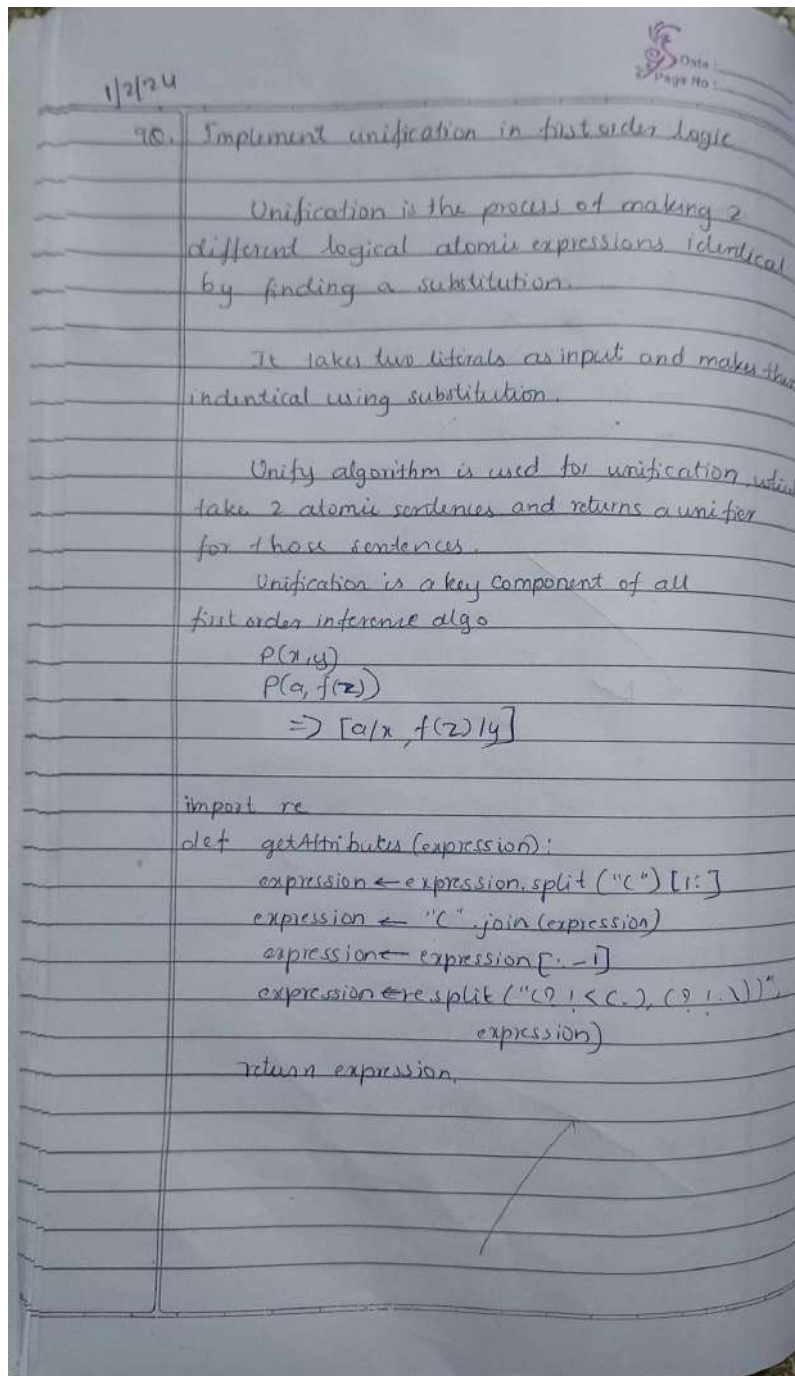 Date:
Page No:
1/2/24
90. Implement unification in first order logic
Unification is the process of making 2
different logical atomic expressions identical
by finding a substitution.
It takes two literals as input and makes them
indentical using substitution.
Unify algorithm is used for unification, which
take 2 atomic sentences and returns a unifier
for those sentences.
Unification is a key component of all
first order inference algo
P(x,y)
P(a, f(z))
=> [a/x, f(z)/y]
import re
def getAttributes (expression):
expression ← expression.split ("(") [1:]
expression ← "(".join (expression)
expression ← expression [:-1]
expression ← re.split ("(?!<(.), (?!.\))",
expression)
return expression.